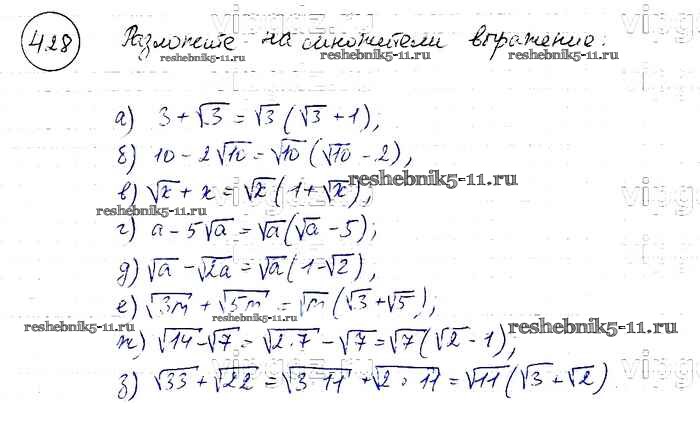 428 Разложите на множители выражение:
reshebnik5-11.ru
reshebnik5-11.ru
а) 3 + √3 = √3 (√3 + 1);
б) 10 - 2√10 = √10 (√10 - 2),
в) √x + x = √x (1 + √x),
reshebnik5-11.ru
reshebnik5-11.ru
г) a - 5√a = √a (√a - 5);
д) √a - √2a = √a (1 - √2),
е) √3m + √5m = √m (√3 + √5);
reshebnik5-11.ru
reshebnik5-11.ru
ж) √14 - √7 = √2·7 - √7 = √7 (√2 - 1);
з) √33 + √22 = √3·11 + √2·11 = √11 (√3 + √2)